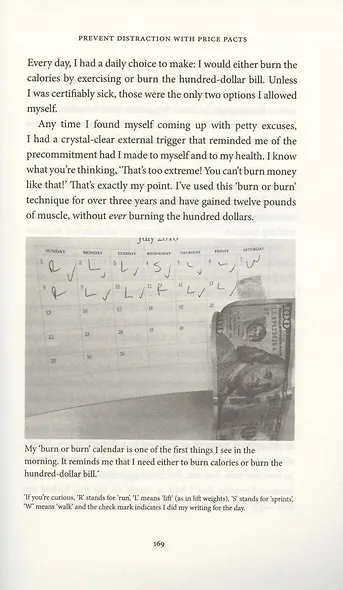 PREVENT DISTRACTION WITH PRICE PACTS
Every day, I had a daily choice to make: I would either burn the
calories by exercising or burn the hundred-dollar bill. Unless
I was certifiably sick, those were the only two options I allowed
myself.
Any time I found myself coming up with petty excuses,
I had a crystal-clear external trigger that reminded me of the
precommitment I had made to myself and to my health. I know
what you're thinking, 'That's too extreme! You can't burn money
like that!' That's exactly my point. I've used this 'burn or burn'
technique for over three years and have gained twelve pounds
of muscle, without ever burning the hundred dollars.
July
SUNDAY MONDAY TUESDAY WEDNESDAY THURSDAY FRIDAY SATURDAY
R ✓ L ✓ L ✓ S ✓ L ✓ L ✓ W
R ✓ L ✓ L ✓ R L ✓ L ✓
100
My 'burn or burn' calendar is one of the first things I see in the
morning. It reminds me that I need either to burn calories or burn the
hundred-dollar bill.*
*If you're curious, 'R' stands for 'run', 'L' means 'lift' (as in lift weights), 'S' stands for 'sprints',
'W' means 'walk' and the check mark indicates I did my writing for the day.
169